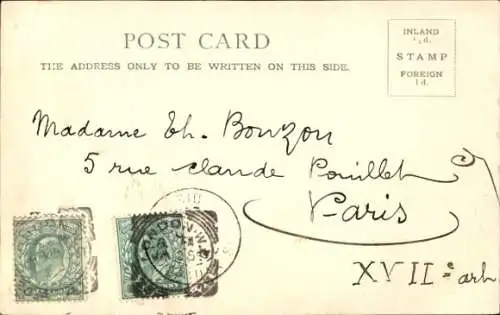 POST CARD
THE ADDRESS ONLY TO BE WRITTEN ON THIS SIDE.
INLAND
½d.
STAMP
FOREIGN
1d.
Madame Th. Bouzon
5 rue claude Pouillet
Paris
XVII e arr
LONDON.W.